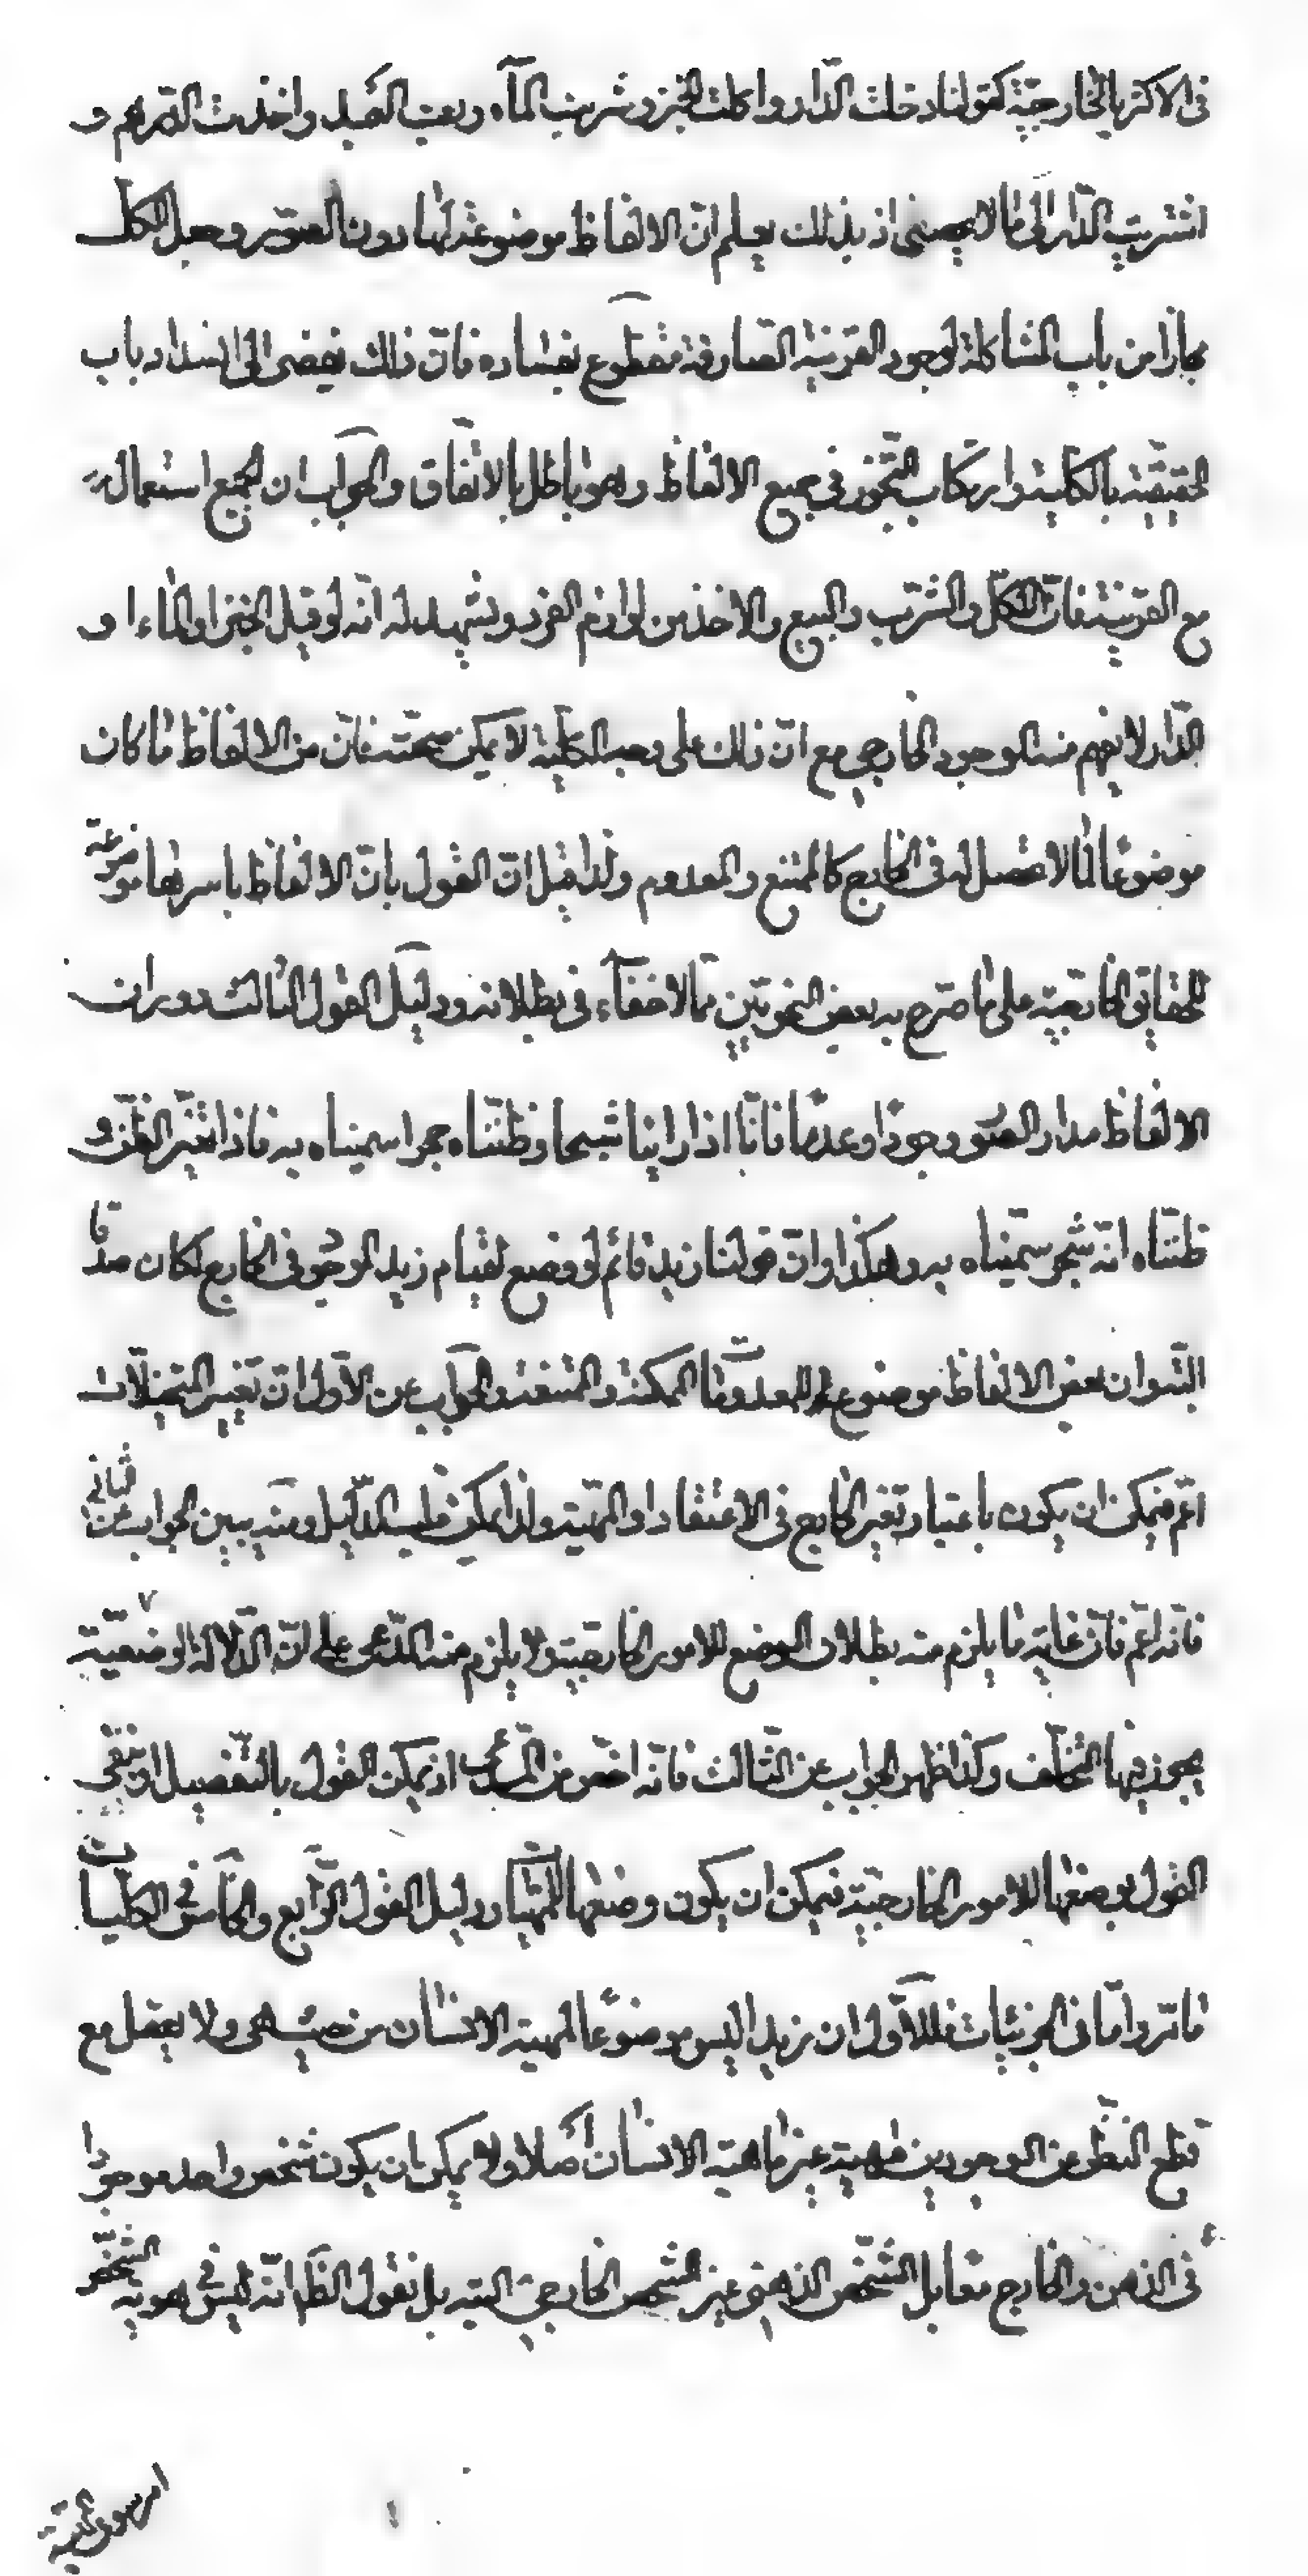 في الاكثر بالخارجيّة كقولنا دخلت الدّار واكلت الخبز وشربت المآء وبعت العبد واخذت الدّرهم و
اشتريت الدّار الى ما لا يحصى اذ بذلك يعلم انّ الالفاظ موضوعة لها دون الصّور وجعل الكلّ
مجازا من باب المشاكلة لوجود القرينة الصّارفة مقطوع بفساده فانّ ذلك يفضى الى انسداد باب
الحقيقة بالكلية وارتكاب التّجوّز في جميع الالفاظ وهو باطل بالاتّفاق والجواب ان الجميع استعمال
مع القرينة فانّ الاكل والشّرب والبيع والاخذ من لوازم الفرد ويشهد له انّه لو قيل الخبز او الماء او
الدّار لا يفهم منه الوجود الخارجي مع انّ ذلك على وجه الكلّية لا يمكن صحّته فانّ من الالفاظ ما كان
موضوعًا لما لا تحصل له في الخارج كالممتنع والمعدوم ولذا قيل انّ القول بانّ الالفاظ باسرها موضوعة
للحقايق الخارجيّة على ما صرّح به بعض النحويّين ممّا لا خفآء في بطلانه ودليل القول الثالث دوران
الالفاظ مدار الصّور وجودًا وعدمًا فانّا اذا راينا شبحا وظننّاه حجرا سميناه به فاذا تغيّر الظنّ و
ظننّاه انّه شجر سمّيناه به وهكذا وانّ قولنا زيد قائم لو وضع لقيام زيد الموجود في الخارج لكان صدقا
البتّه وان بعض الالفاظ موضوع للمعدومات الممكنة والممتنعة والجواب عن الاوّل انّ تغيير التّخيّلات
اعم فيمكن ان يكون باعتبار تغير الخارج في الاعتقاد او المهيّة ولذا يمكن قلب الدّليل ومنه يبين الجواب عن الثّاني
فانّه اعم فانّ غاية ما يلزم منه بطلان الوضع للامور الخارجيّة ولا يلزم منه المدّعى على انّ الدّلالة الوضعيّة
يجوز فيها التخلّف وكذا ظهر الجواب عن الثّالث فانّه اخصّ من المدّعى اذ يمكن القول بالتّفصيل او نفى
القول بوضعها للامور الخارجيّة فيمكن ان يكون وضعها للمهيّات ودليل القول الرّابع والخامس في الكليّات
ما مّر وامّا في الجزئيّات فللاوّل ان زيدا ليس موضوعًا لمهية الانسان من حيث هى ولا يعقل مع
قطع النّظر عن الوجودين مهية غير ماهيّة الانسان اصلا ولا يمكن ان يكون شخص واحد موجودا
في الذهن والخارج مقابل الشّخص الذهنى غير الشخص الخارجى البتة بل نقول الظّ انّه ليس في هوية الشّخص